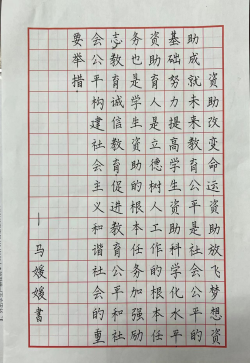 资助改变命运资助放飞梦想资
助成就未来教育公平是社会公平的
基础努力提高学生资助科学化水平
资助育人是立德树人工作的根本任
务也是学生资助的根本任务加强励
志教育诚信教育促进教育公平和社
会公平构建社会主义和谐社会的重
要举措
一马媛媛書